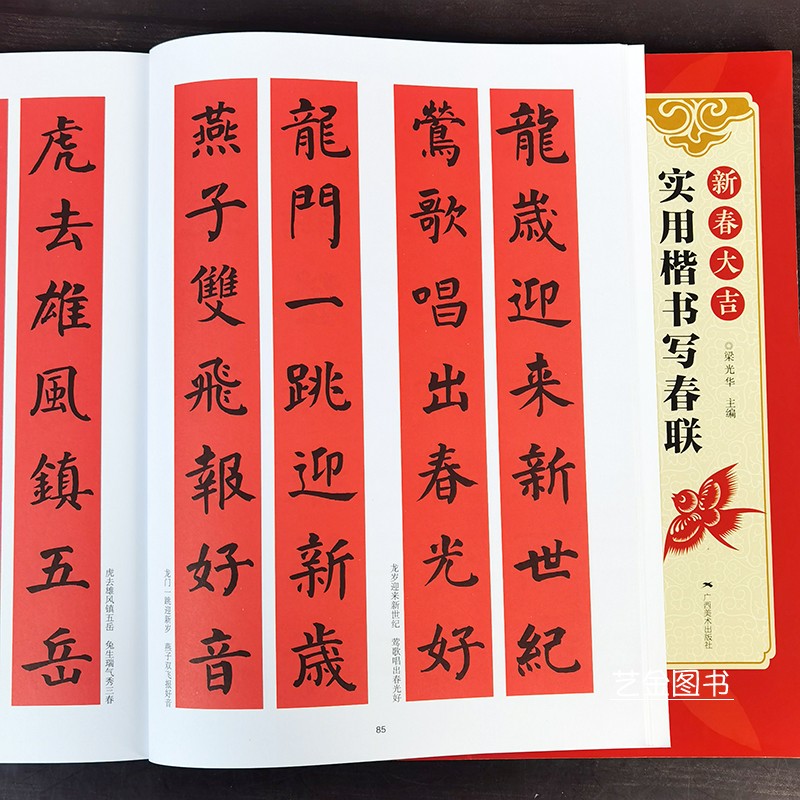 龍歲迎来新世紀
鶯歌唱出春光好
龙岁迎来新世纪　莺歌唱出春光好
龍門一跳迎新歲
燕子雙飛報好音
龙门一跳迎新岁　燕子双飞报好音
85
虎去雄風鎮五岳
虎去雄风镇五岳　兔生瑞气秀三春
新春大吉
实用楷书写春联
◎梁光华　主编
广西美术出版社
艺金图书